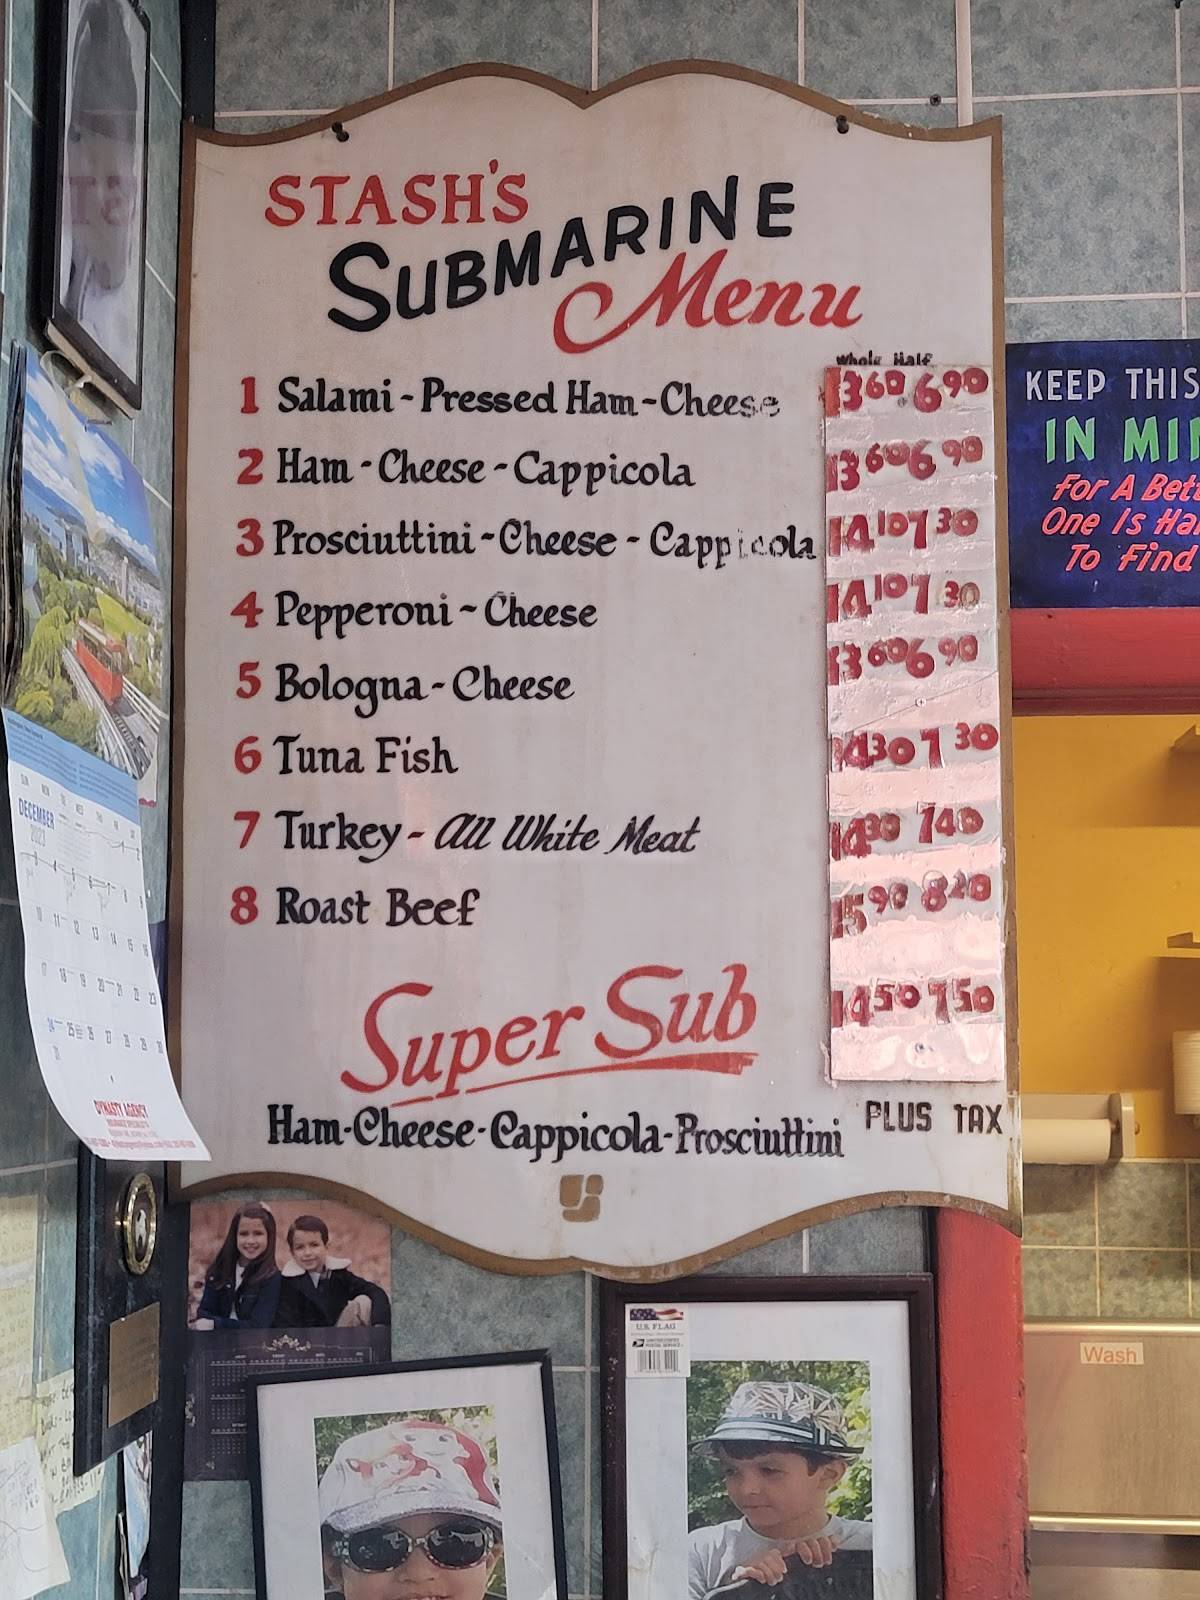 STASH'S
SUBMARINE
Menu
Whole Half
1 Salami - Pressed Ham - Cheese 13 60 6 90
2 Ham - Cheese - Cappicola 13 60 6 90
3 Prosciuttini - Cheese - Cappicola 14 10 7 30
4 Pepperoni - Cheese 14 10 7 30
5 Bologna - Cheese 13 60 6 90
6 Tuna Fish 14 30 7 30
7 Turkey - All White Meat 14 30 7 40
8 Roast Beef 15 90 8 20
Super Sub 14 50 7 50
Ham-Cheese-Cappicola-Prosciuttini
PLUS TAX
KEEP THIS
IN MI
For A Bett
One Is Ha
To Find
DECEMBER
2023
DYNASTY AGENCY
U.S. FLAG
Wash